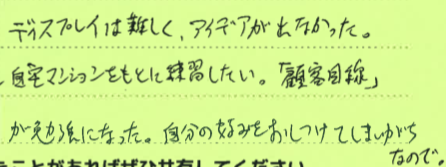 ディスプレイは難しく、アイデアが出なかった。
自宅マンションをもとに練習したい。「顧客目線」
が勉強になった。自分の好みをおしつけてしまいがち
なので
たことがあればぜひ共有してください